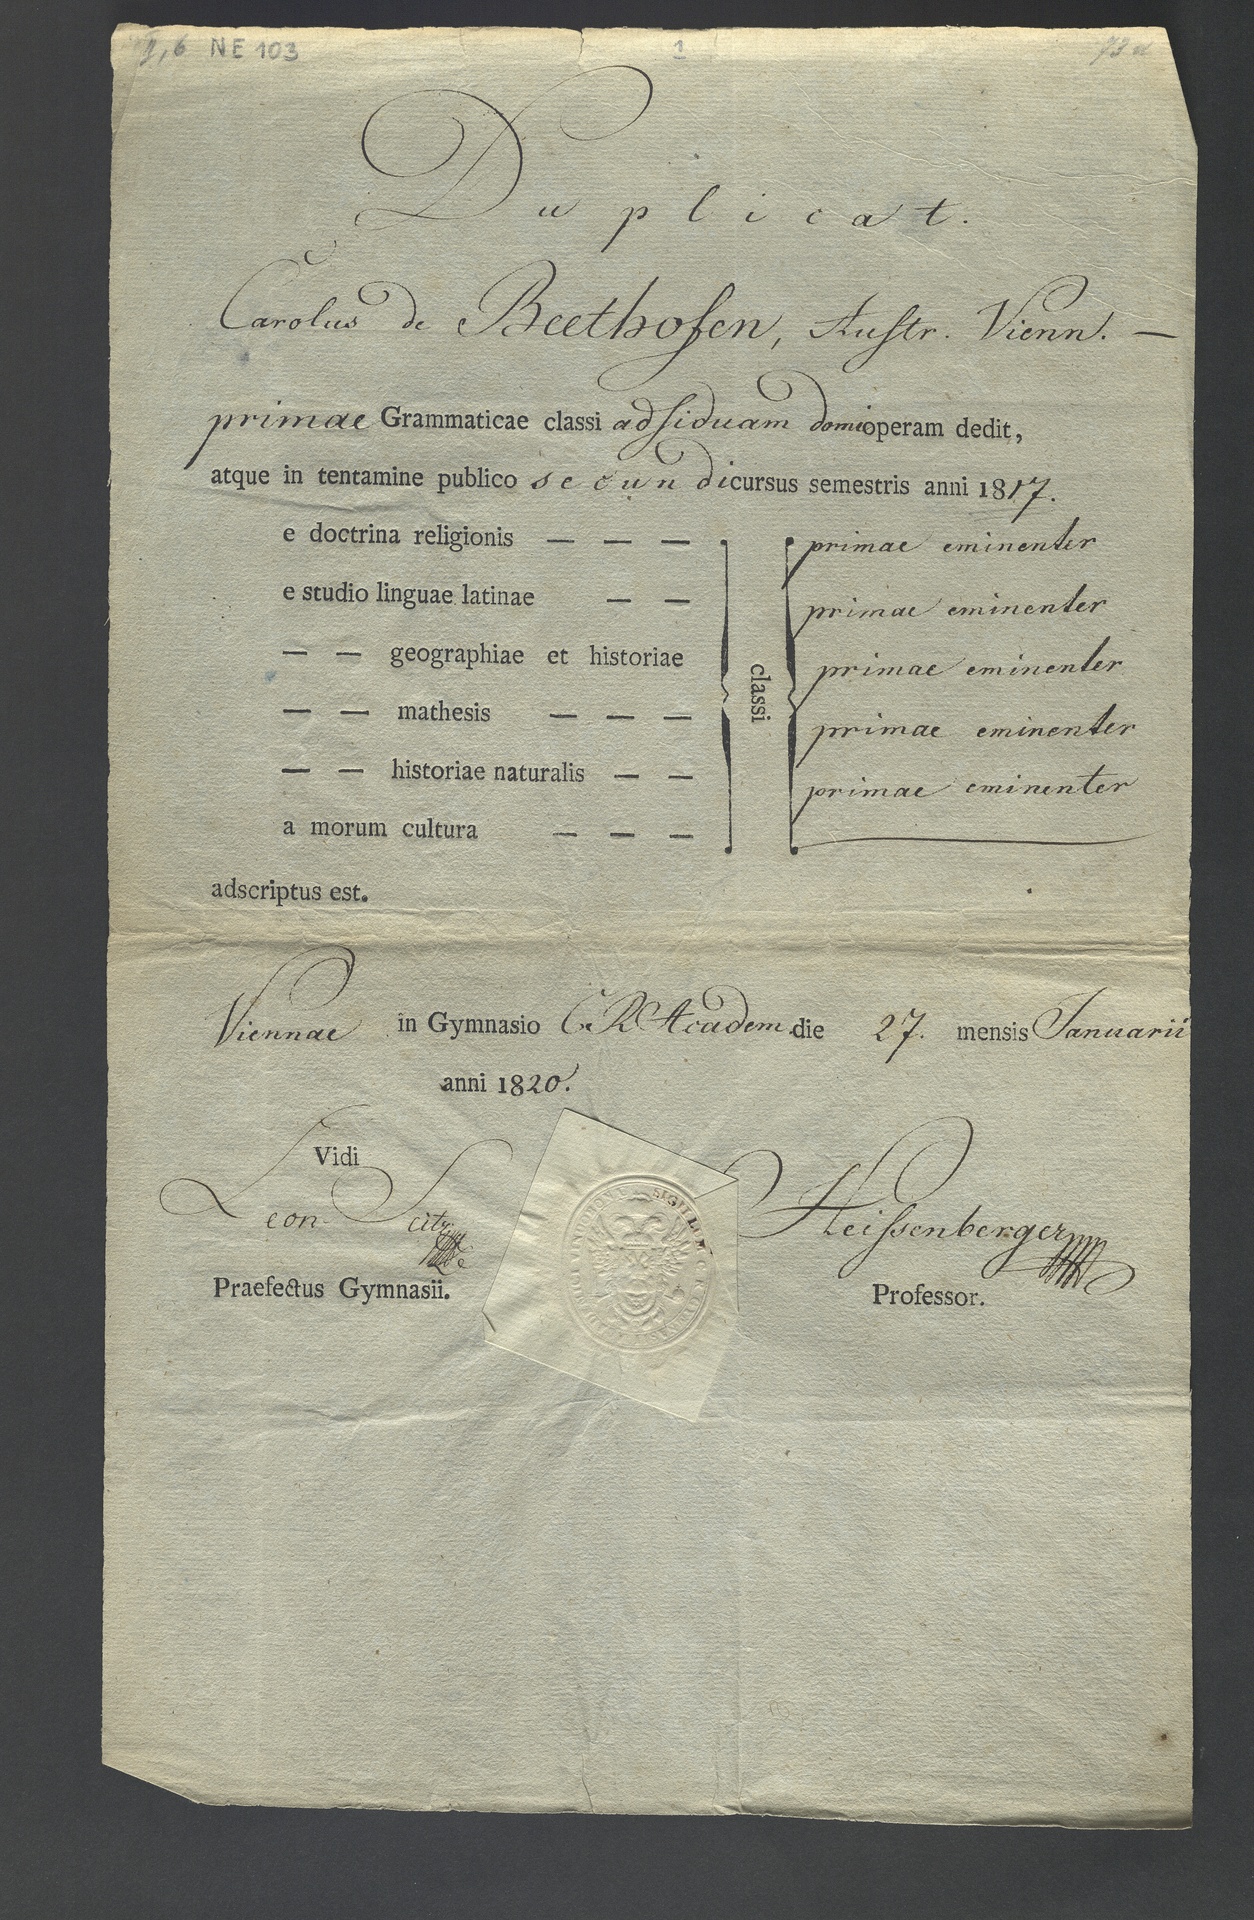 NE 103
1
Duplicat.
Carolus de Beethofen, Austr. Vienn. —
primae Grammaticae classi adsiduam domi operam dedit,
atque in tentamine publico secundi cursus semestris anni 1817.
e doctrina religionis — — — primae eminenter
e studio linguae latinae — — primae eminenter
— — geographiae et historiae primae eminenter
classi
— — mathesis — — — primae eminenter
— — historiae naturalis — — primae eminenter
a morum cultura — — — ———
adscriptus est.
Viennae in Gymnasio C. R. Academ. die 27. mensis Januarii
anni 1820.
Vidi
Heissenberger
Praefectus Gymnasii.
Professor.